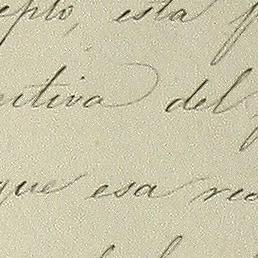 epto, esta
ectiva del
que esa